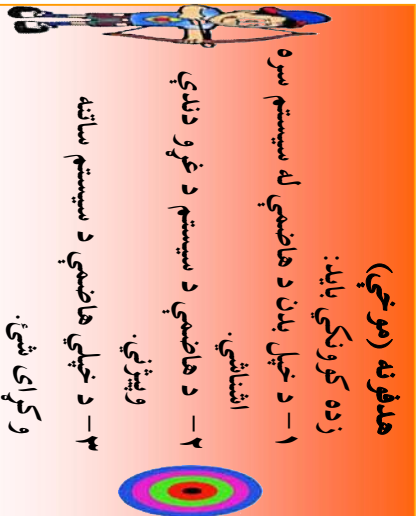 هدفونه (موخې)
زده کوونکي باید:
۱- د خپل بدن د هاضمې له سیستم سره
اشناشي.
۲- د هاضمې د سیستم د غړو دندې
وپېژني.
۳- د خپلې هاضمې د سیستم ساتنه
وکړای شئ.